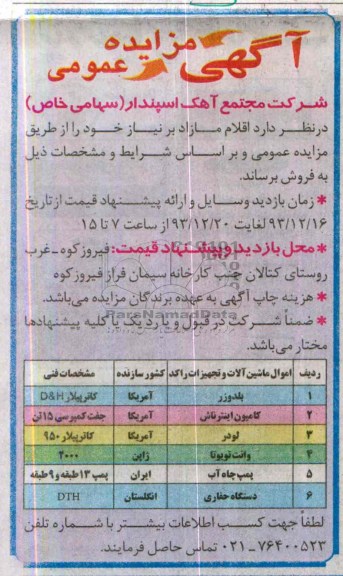 آگهی مزایده عمومی
شرکت مجتمع آهک اسپندار (سهامی خاص)
درنظر دارد اقلام مازاد بر نیاز خود را از طریق
مزایده عمومی و بر اساس شرایط و مشخصات ذیل
به فروش برساند.
* زمان بازدید وسایل و ارائه پیشنهاد قیمت از تاریخ
۹۳/۱۲/۱۶ لغایت ۹۳/۱۲/۲۰ از ساعت ۷ تا ۱۵
* محل بازدید و پیشنهاد قیمت: فیروزکوه - غرب
روستای کتالان جنب کارخانه سیمان فراز فیروزکوه
* هزینه چاپ آگهی به عهده برندگان مزایده می‌باشد.
* ضمناً شرکت در قبول و یا رد یک یا کلیه پیشنهادها
مختار می‌باشد.
ردیف اموال ماشین آلات و تجهیزات راکد کشور سازنده مشخصات فنی
۱ بلدوزر آمریکا کاترپیلار D&H
۲ کامیون اینترناش آمریکا جفت کمپرسی ۱۵ تن
۳ لودر آمریکا کاترپیلار ۹۵۰
۴ وانت تویوتا ژاپن ۲۰۰۰
۵ پمپ چاه آب ایران پمپ ۱۳ طبقه و ۹ طبقه
۶ دستگاه حفاری انگلستان DTH
لطفاً جهت کسب اطلاعات بیشتر با شماره تلفن
۷۶۴۰۰۵۲۳ - ۰۲۱ تماس حاصل فرمایند.
ParsNamadData